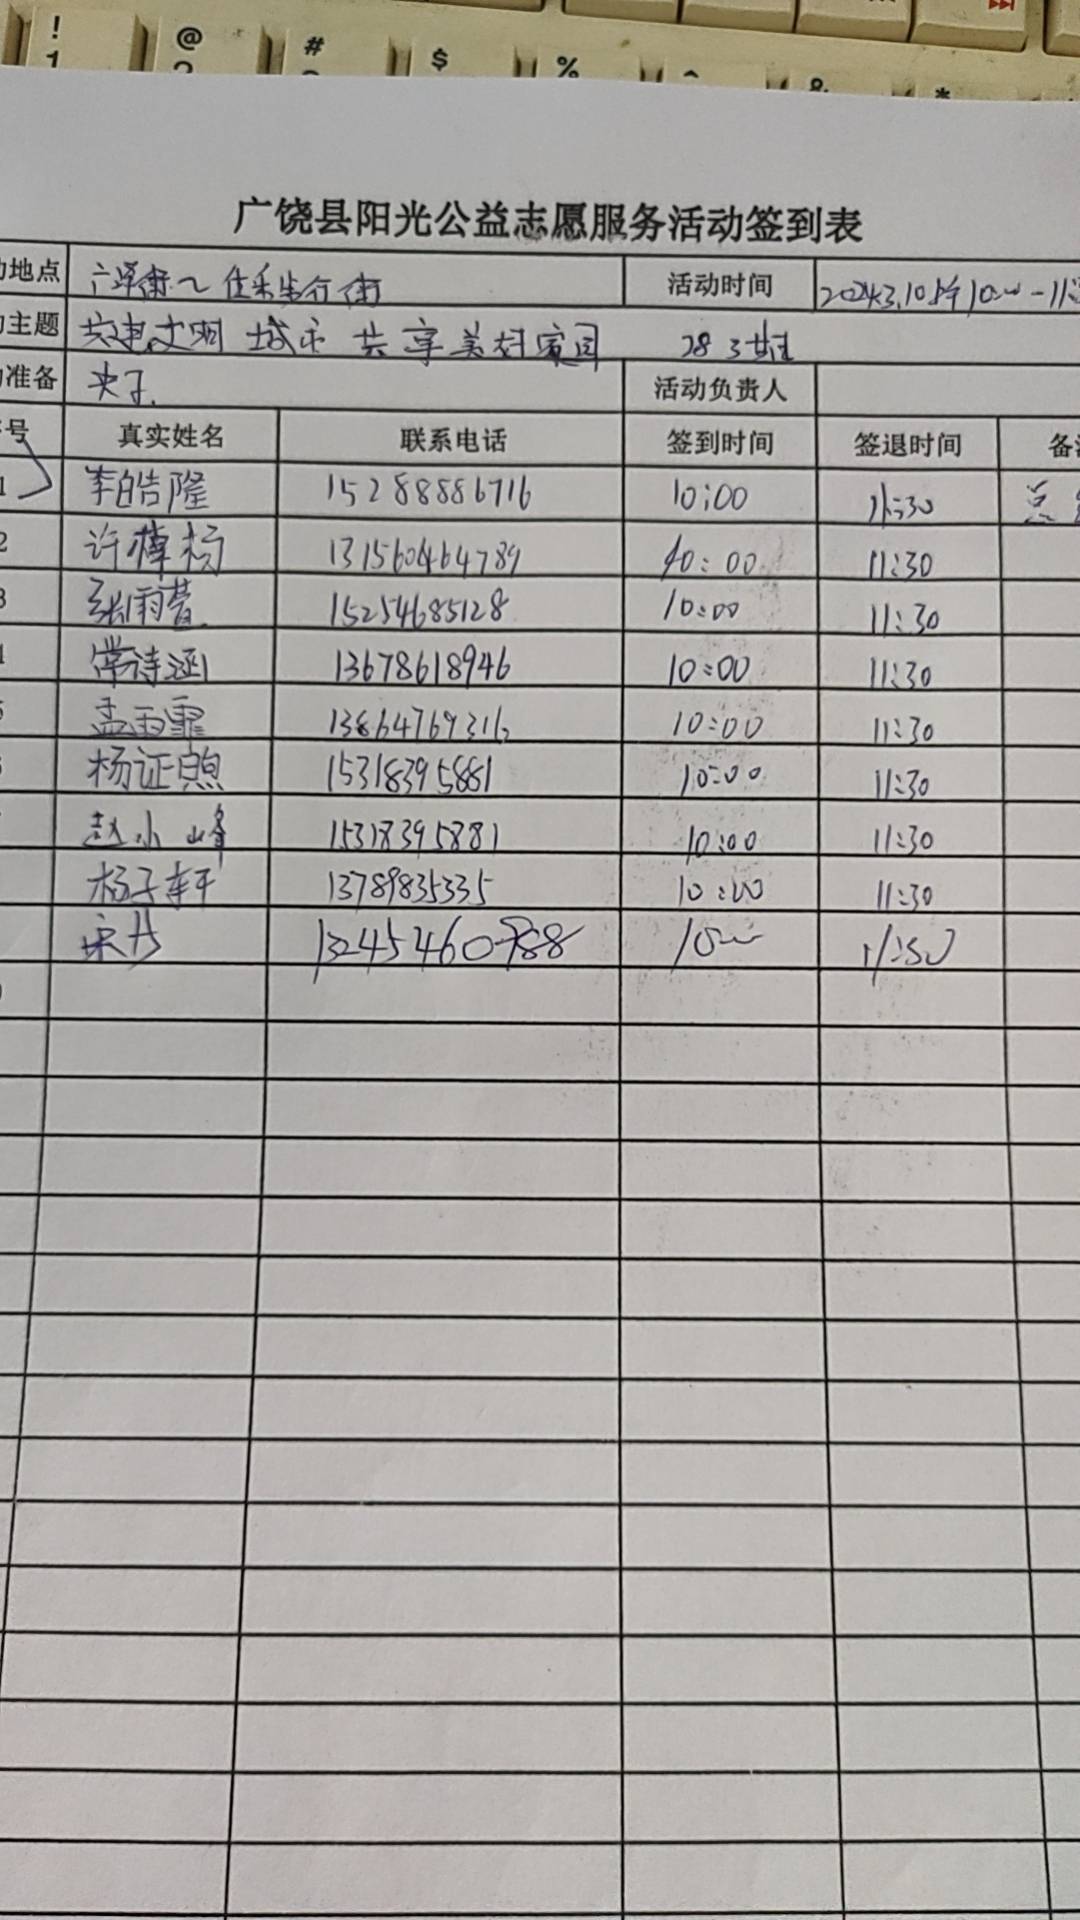 ! @ # $ % ^ & *
1
广饶县阳光公益志愿服务活动签到表
地点 活动时间 2024.3.10
主题 共建文明 城市 共享美好家园
准备 夹子. 活动负责人
号 真实姓名 联系电话 签到时间 签退时间 备
1 李皓隆 15288886716 10:00 11:30 总
2 许樟杨 131560464789 10:00 11:30
3 张雨萱 15254685128 10:00 11:30
常诗涵 13678618946 10:00 11:30
孟雨霏 13864769316 10:00 11:30
杨证煦 15318395881 10:00 11:30
赵小峰 15318395881 10:00 11:30
杨子轩 13789835335 10:00 11:30
13245460788 11:30